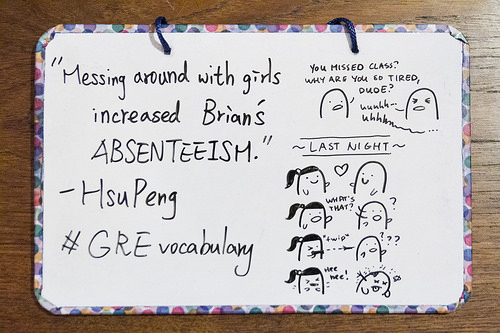 "Messing around with girls
increased Brian's
ABSENTEEISM."
- HsuPeng
# GRE vocabulary
YOU MISSED CLASS?
WHY ARE YOU SO TIRED,
DUDE?
uuuhh~
hhhhm~......
~ LAST NIGHT ~
WHAT'S
THAT?
?
*twip*
? ? ?
HEE
HEE!